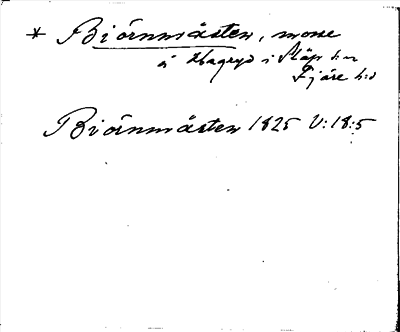 * Biörnmåsten, mosse
å Hagryd i Släp s:n
Fjäre h:d
Biörnmåsten 1825 V:18:5